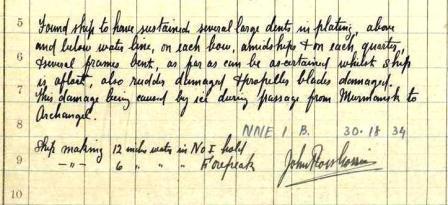 5 Found ship to have sustained several large dents in plating, above
and below water line, on each bow, amidships & on each quarter,
6 & several frames bent, as per as can be ascertained whilst ship
7 is afloat, also rudder damaged & propeller blades damaged.
This damage being caused by ice during passage from Murmansk to
8 Archangel.
NNE 1 B. 30.18 34
Ship making 12 inches water in No I hold
9 -"- 6 " " " Forepeak
10